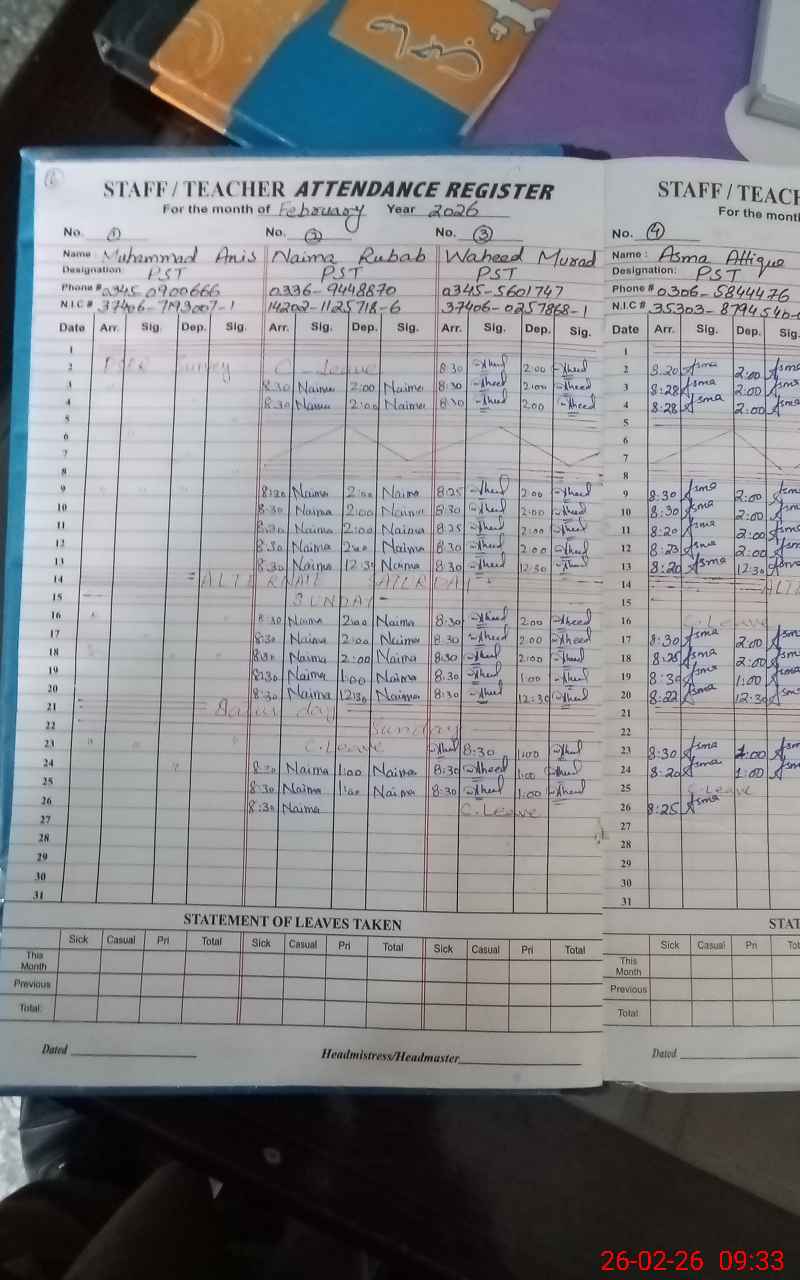 STAFF / TEACHER ATTENDANCE REGISTER
For the month of February Year 2026
No. 1 No. 2 No. 3
Name Muhammad Anis Naima Rubab Waheed Murad
Designation: PST PST PST
Phone # 0345 0900666 0336-9448870 0345-5601747
N.I.C # 37406-7193007-1 14202-1125718-6 37406-0257868-1
Date Arr. Sig. Dep. Sig. Arr. Sig. Dep. Sig. Arr. Sig. Dep. Sig.
1
2 Survey C-Leave 8:30 2:00
3 8:30 Naima 2:00 Naima 8:30 2:00
4 8:30 Naima 2:00 Naima 8:30 2:00
5
6
7
8
9 8:30 Naima 2:00 Naima 8:25 2:00
10 8:30 Naima 2:00 Naima 8:30 2:00
11 8:30 Naima 2:00 Naima 8:25 2:00
12 8:30 Naima 2:00 Naima 8:30 2:00
13 8:30 Naima 12:30 Naima 8:30 12:30
14
15 SUNDAY
16 8:30 Naima 2:00 Naima 8:30 2:00
17 8:30 Naima 2:00 Naima 8:30 2:00
18 8:30 Naima 2:00 Naima 8:30 2:00
19 8:30 Naima 1:00 Naima 8:30 1:00
20 8:30 Naima 12:30 Naima 8:30 12:30
21 Saturday
22 Sunday
23 C.Leave 8:30 1:00
24 8:30 Naima 1:00 Naima 8:30 1:00
25 8:30 Naima 1:00 Naima 8:30 1:00
26 8:30 Naima C.Leave
27
28
29
30
31
STATEMENT OF LEAVES TAKEN
Sick Casual Pri Total Sick Casual Pri Total Sick Casual Pri Total
This Month
Previous
Total:
Dated Headmistress/Headmaster
STAFF / TEACH
For the mont
No. 4
Name : Asma Attique
Designation: PST
Phone # 0306-5844476
N.I.C # 35303-8794540-
Date Arr. Sig. Dep. Sig.
1
2 8:20 Asma 2:00 Asma
3 8:28 Asma 2:00 Asma
4 8:28 Asma 2:00 Asma
5
6
7
8
9 8:30 Asma 2:00 Asma
10 8:30 Asma 2:00 Asma
11 8:20 Asma 2:00 Asma
12 8:23 Asma 2:00 Asma
13 8:20 Asma 12:30 Asma
14
15
16 C.Leave
17 8:30 Asma 2:00 Asma
18 8:25 Asma 2:00 Asma
19 8:30 Asma 1:00 Asma
20 8:22 Asma 12:30 Asma
21
22
23 8:30 Asma 1:00 Asma
24 8:20 Asma 1:00 Asma
25 C.Leave
26 8:25 Asma
27
28
29
30
31
STAT
Sick Casual Pri Tot
This Month
Previous
Total:
Dated
26-02-26 09:33